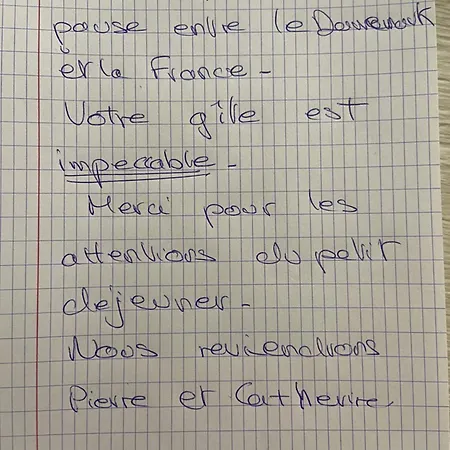 pause entre le Danemark
et la France -
Votre gîte est
impeccable -
Merci pour les
attentions du petit
déjeuner -
Nous reviendrons
Pierre et Catherine.